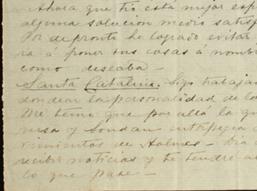 Ahora que tio está mejor esp
alguna solución medio satisf
Por de pronto he logrado evitar
ra á poner sus casas á nombr
como deseaba.-
Santa Catalina. Sigo trabajan
donde la personalidad de la
Me temo que por allá la gu
misa y
vimientos de Holmes -
recibir noticias y te tendré al
lo que pase -